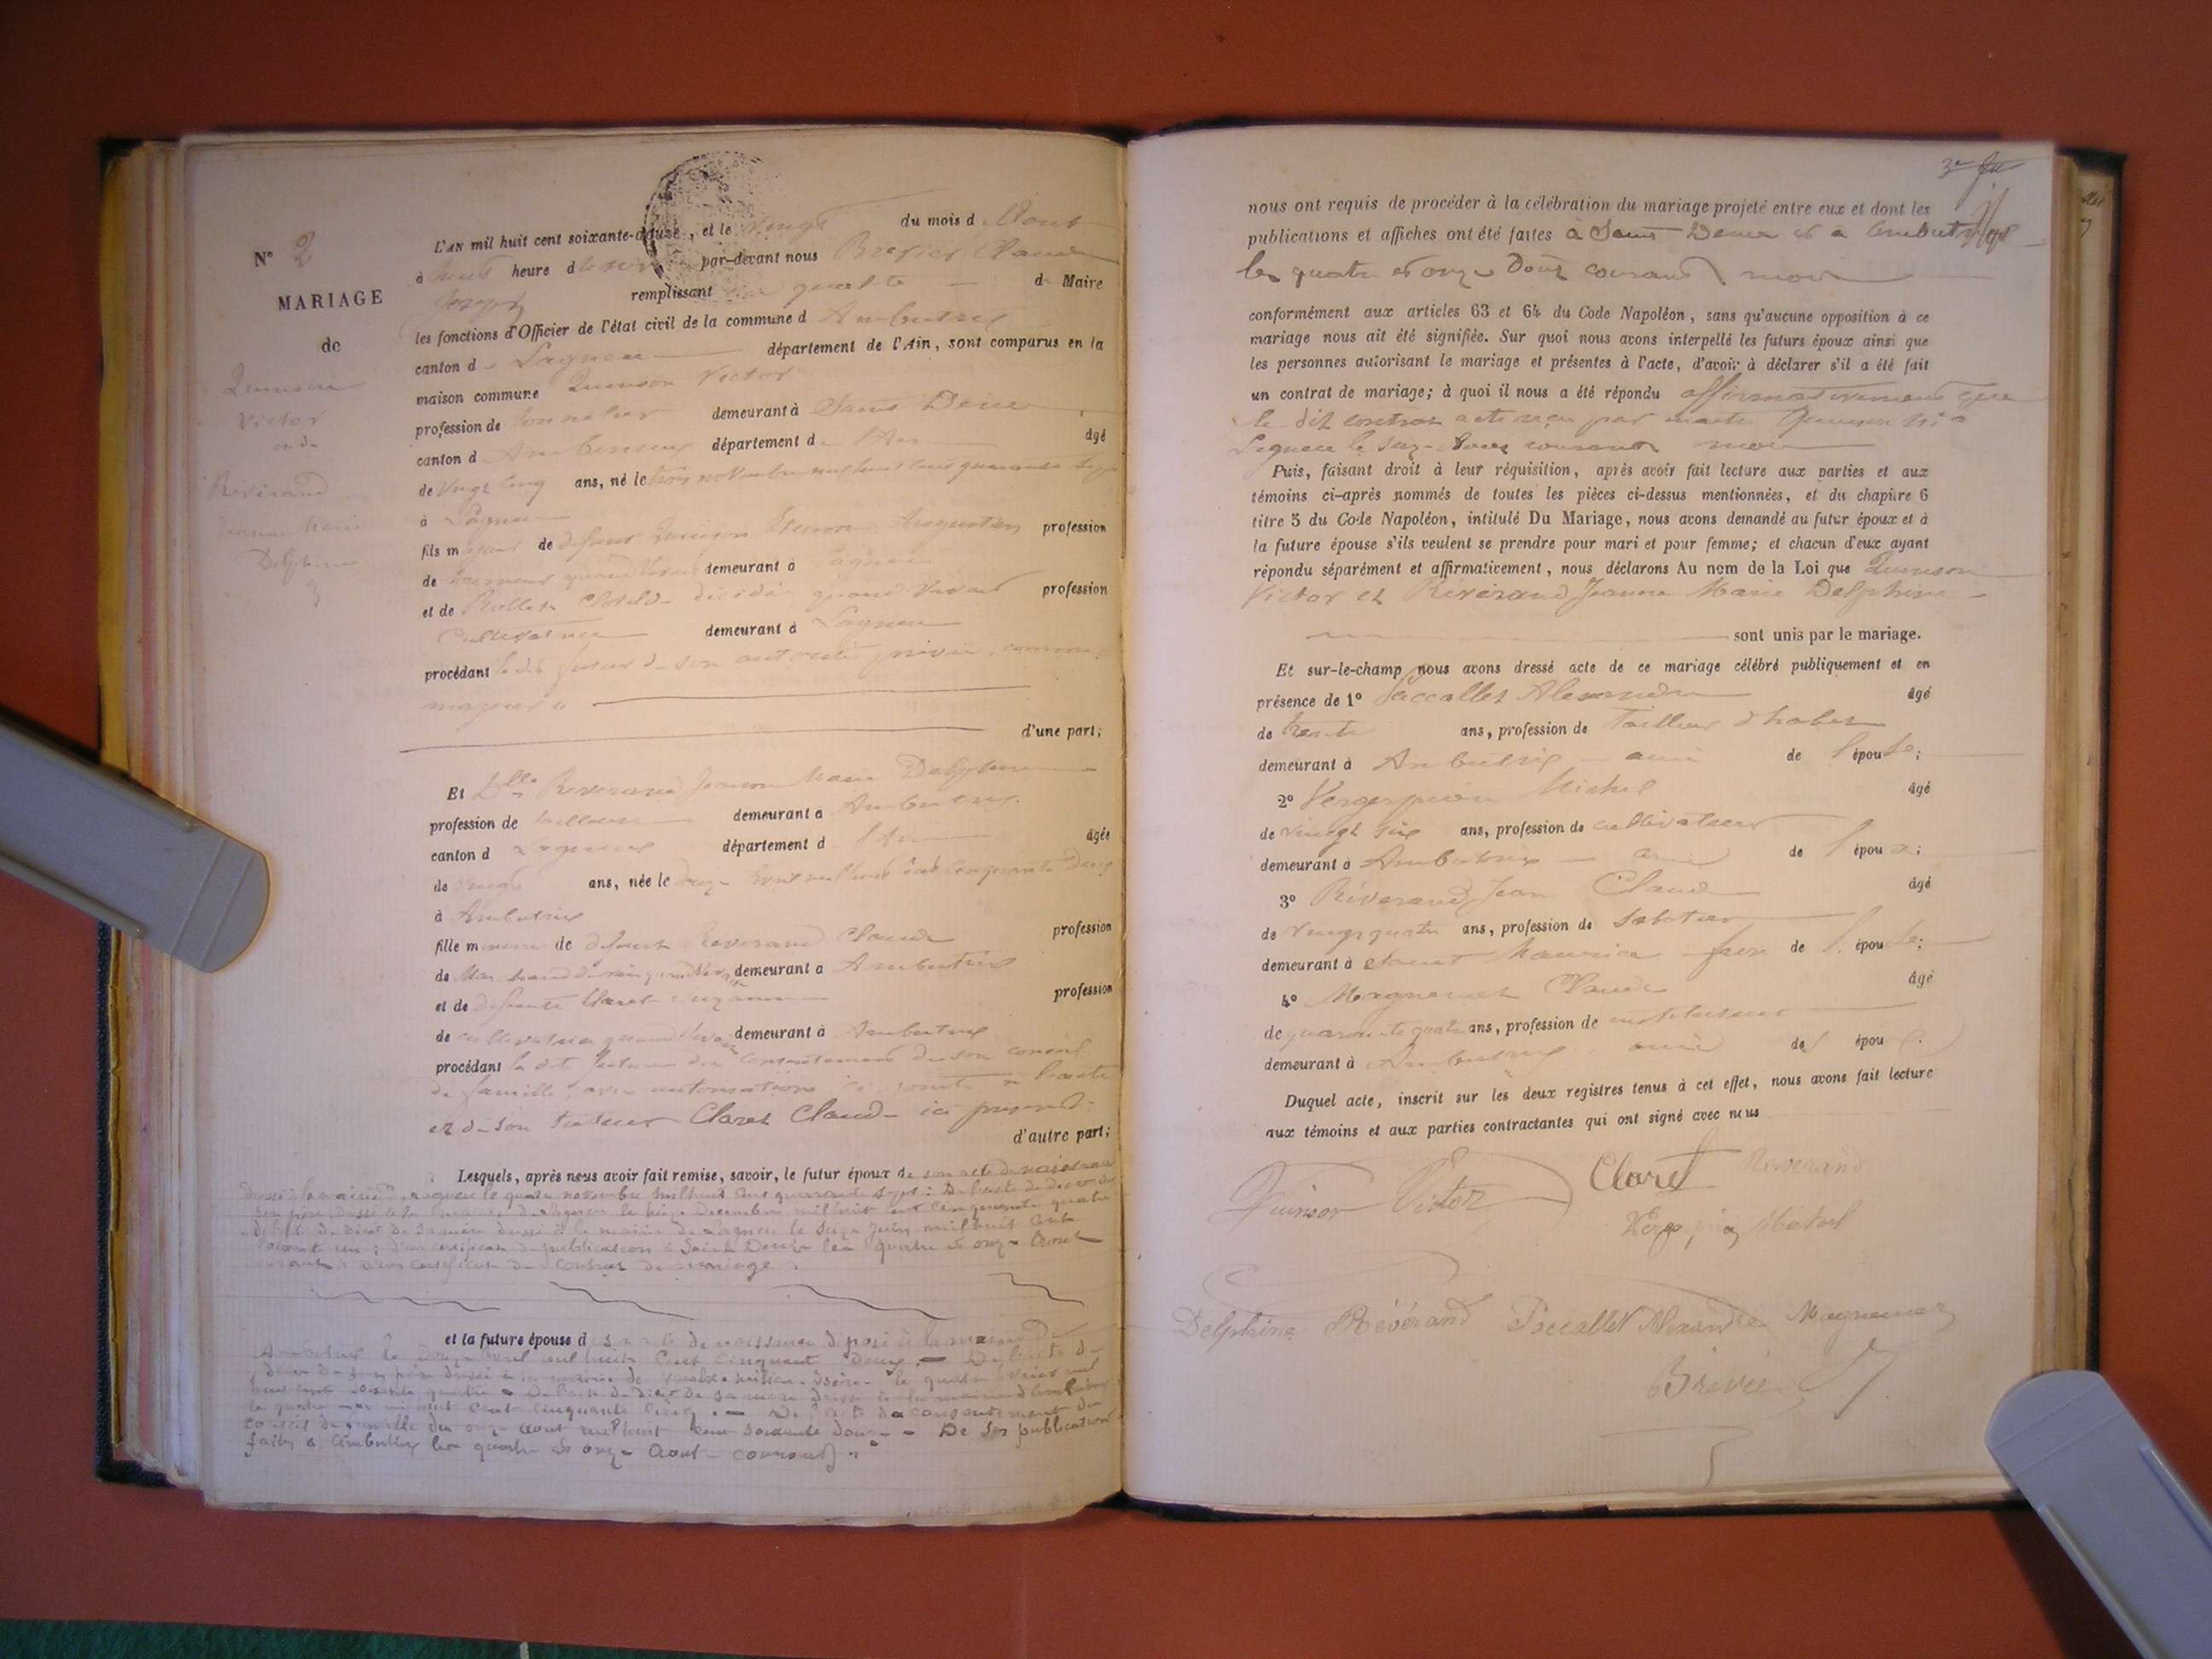 N° 2
MARIAGE
de
Quinson
Victor
et de
Révérand
Jeanne Marie
Delphine
L'AN mil huit cent soixante-douze, et le vingt du mois d'Aout
à huit heure du soir par-devant nous Brévier Claude
Joseph remplissant en qualité de Maire
les fonctions d'Officier de l'état civil de la commune d Ambutrix
canton d Lagnieu département de l'Ain, sont comparus en la
maison commune Quinson Victor
profession de tonnelier demeurant à Saint Denis
canton d Ambérieux département d l'Ain âgé
de Vingt cinq ans, né le trois novembre mil huit cent quarante sept
à Lagnieu
fils majeur de défunt Quinson Augustin profession
de quand vivait demeurant à Lagnieu
et de Rollet Clotilde décédée quand vivait profession
Cultivatrice demeurant à Lagnieu
procédant le dit futur de son autorité privée, comme
majeur
d'une part;
Et Dlle Reverand Jeanne Marie Delphine
profession de tailleuse demeurant à Ambutrix
canton d Lagnieu département d l'Ain âgée
de vingt ans, née le douze Avril mil huit cent cinquante deux
à Ambutrix
fille mineure de défunt Reverand Claude profession
de demeurant à Ambutrix
et de défunte Claret Suzanne profession
de cultivatrice quand vivait demeurant à Ambutrix
procédant la dite future du consentement de son conseil
de famille, avec autorisation à l'acte
et de son tuteur Claret Claude ici présent
d'autre part;
Lesquels, après nous avoir fait remise, savoir, le futur époux de son acte de naissance
dressé à la mairie de Lagnieu le quatre novembre mil huit cent quarante sept : De l'acte de décès de
son père dressé à la mairie de Lagnieu le Décembre mil huit cent cinquante quatre
de l'acte de décès de sa mère dressé à la mairie de Lagnieu le seize Juin mil huit cent
soixante un ; d'un certificat de publication à Saint Denis les quatre et onze Aout
courant ; d'un certificat de contrat de mariage
et la future épouse de son acte de naissance déposé à la mairie de
Ambutrix le Douze Avril mil huit Cent Cinquante Deux. — De l'acte de
décès de son père dressé à la mairie de le quatre mil
huit cent soixante quatre — De l'acte de décès de sa mère dressé à la mairie d'Ambutrix
le quatre mil huit cent cinquante cinq. — De l'acte de consentement du
conseil de famille du onze aout mil huit cent soixante douze — De ses publications
faites à Ambutrix les quatre et onze Aout courant
nous ont requis de procéder à la célébration du mariage projeté entre eux et dont les
publications et affiches ont été faites à Saint Denis et à Ambutrix
les quatre et onze Aout courant mois
conformément aux articles 63 et 64 du Code Napoléon, sans qu'aucune opposition à ce
mariage nous ait été signifiée. Sur quoi nous avons interpellé les futurs époux ainsi que
les personnes autorisant le mariage et présentes à l'acte, d'avoir à déclarer s'il a été fait
un contrat de mariage; à quoi il nous a été répondu affirmativement que
le dit contrat acte reçu par maitre Quinson à
Lagnieu le seize Aout courant mois
Puis, faisant droit à leur réquisition, après avoir fait lecture aux parties et aux
témoins ci-après nommés de toutes les pièces ci-dessus mentionnées, et du chapitre 6
titre 5 du Code Napoléon, intitulé Du Mariage, nous avons demandé au futur époux et à
la future épouse s'ils veulent se prendre pour mari et pour femme; et chacun d'eux ayant
répondu séparément et affirmativement, nous déclarons Au nom de la Loi que Quinson
Victor et Révérand Jeanne Marie Delphine
sont unis par le mariage.
Et sur-le-champ nous avons dressé acte de ce mariage célébré publiquement et en
présence de 1° Paccallet Alexandre âgé
de trente ans, profession de Tailleur d'habits
demeurant à Ambutrix ami de l'épouse;
2° Vergespion Michel âgé
de vingt six ans, profession de cultivateur
demeurant à Ambutrix ami de l'époux;
3° Révérand Jean Claude âgé
de Vingt quatre ans, profession de Sabotier
demeurant à Saint Maurice frère de l'épouse;
4° Magnenet Claude âgé
de quarante quatre ans, profession de instituteur
demeurant à Ambutrix ami des époux.
Duquel acte, inscrit sur les deux registres tenus à cet effet, nous avons fait lecture
aux témoins et aux parties contractantes qui ont signé avec nous
Quinson Victor Claret Reverand
Michel
Delphine Révérand Paccallet Alexandre Magnenet
Brévier